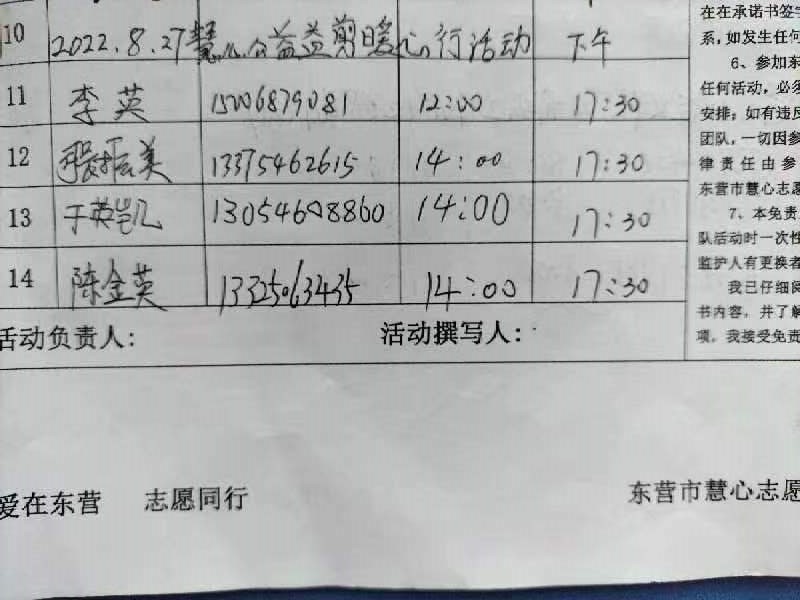 10 2022.8.27慧心公益益剪暖心行活动 下午
11 李英 15006879081 12:00 17:30
12 殷振美 13375462615 14:00 17:30
13 于英凯 13054608860 14:00 17:30
14 陈金英 13325063435 14:00 17:30
活动负责人: 活动撰写人:
在在承诺书签字
系,如发生任何
6、参加东
任何活动,必须
安排;如有违反
团队,一切因参
律责任由参
东营市慧心志愿
7、本免责
队活动时一次性
监护人有更换者
我已仔细阅
书内容,并了解
项。我接受免责
爱在东营 志愿同行 东营市慧心志愿